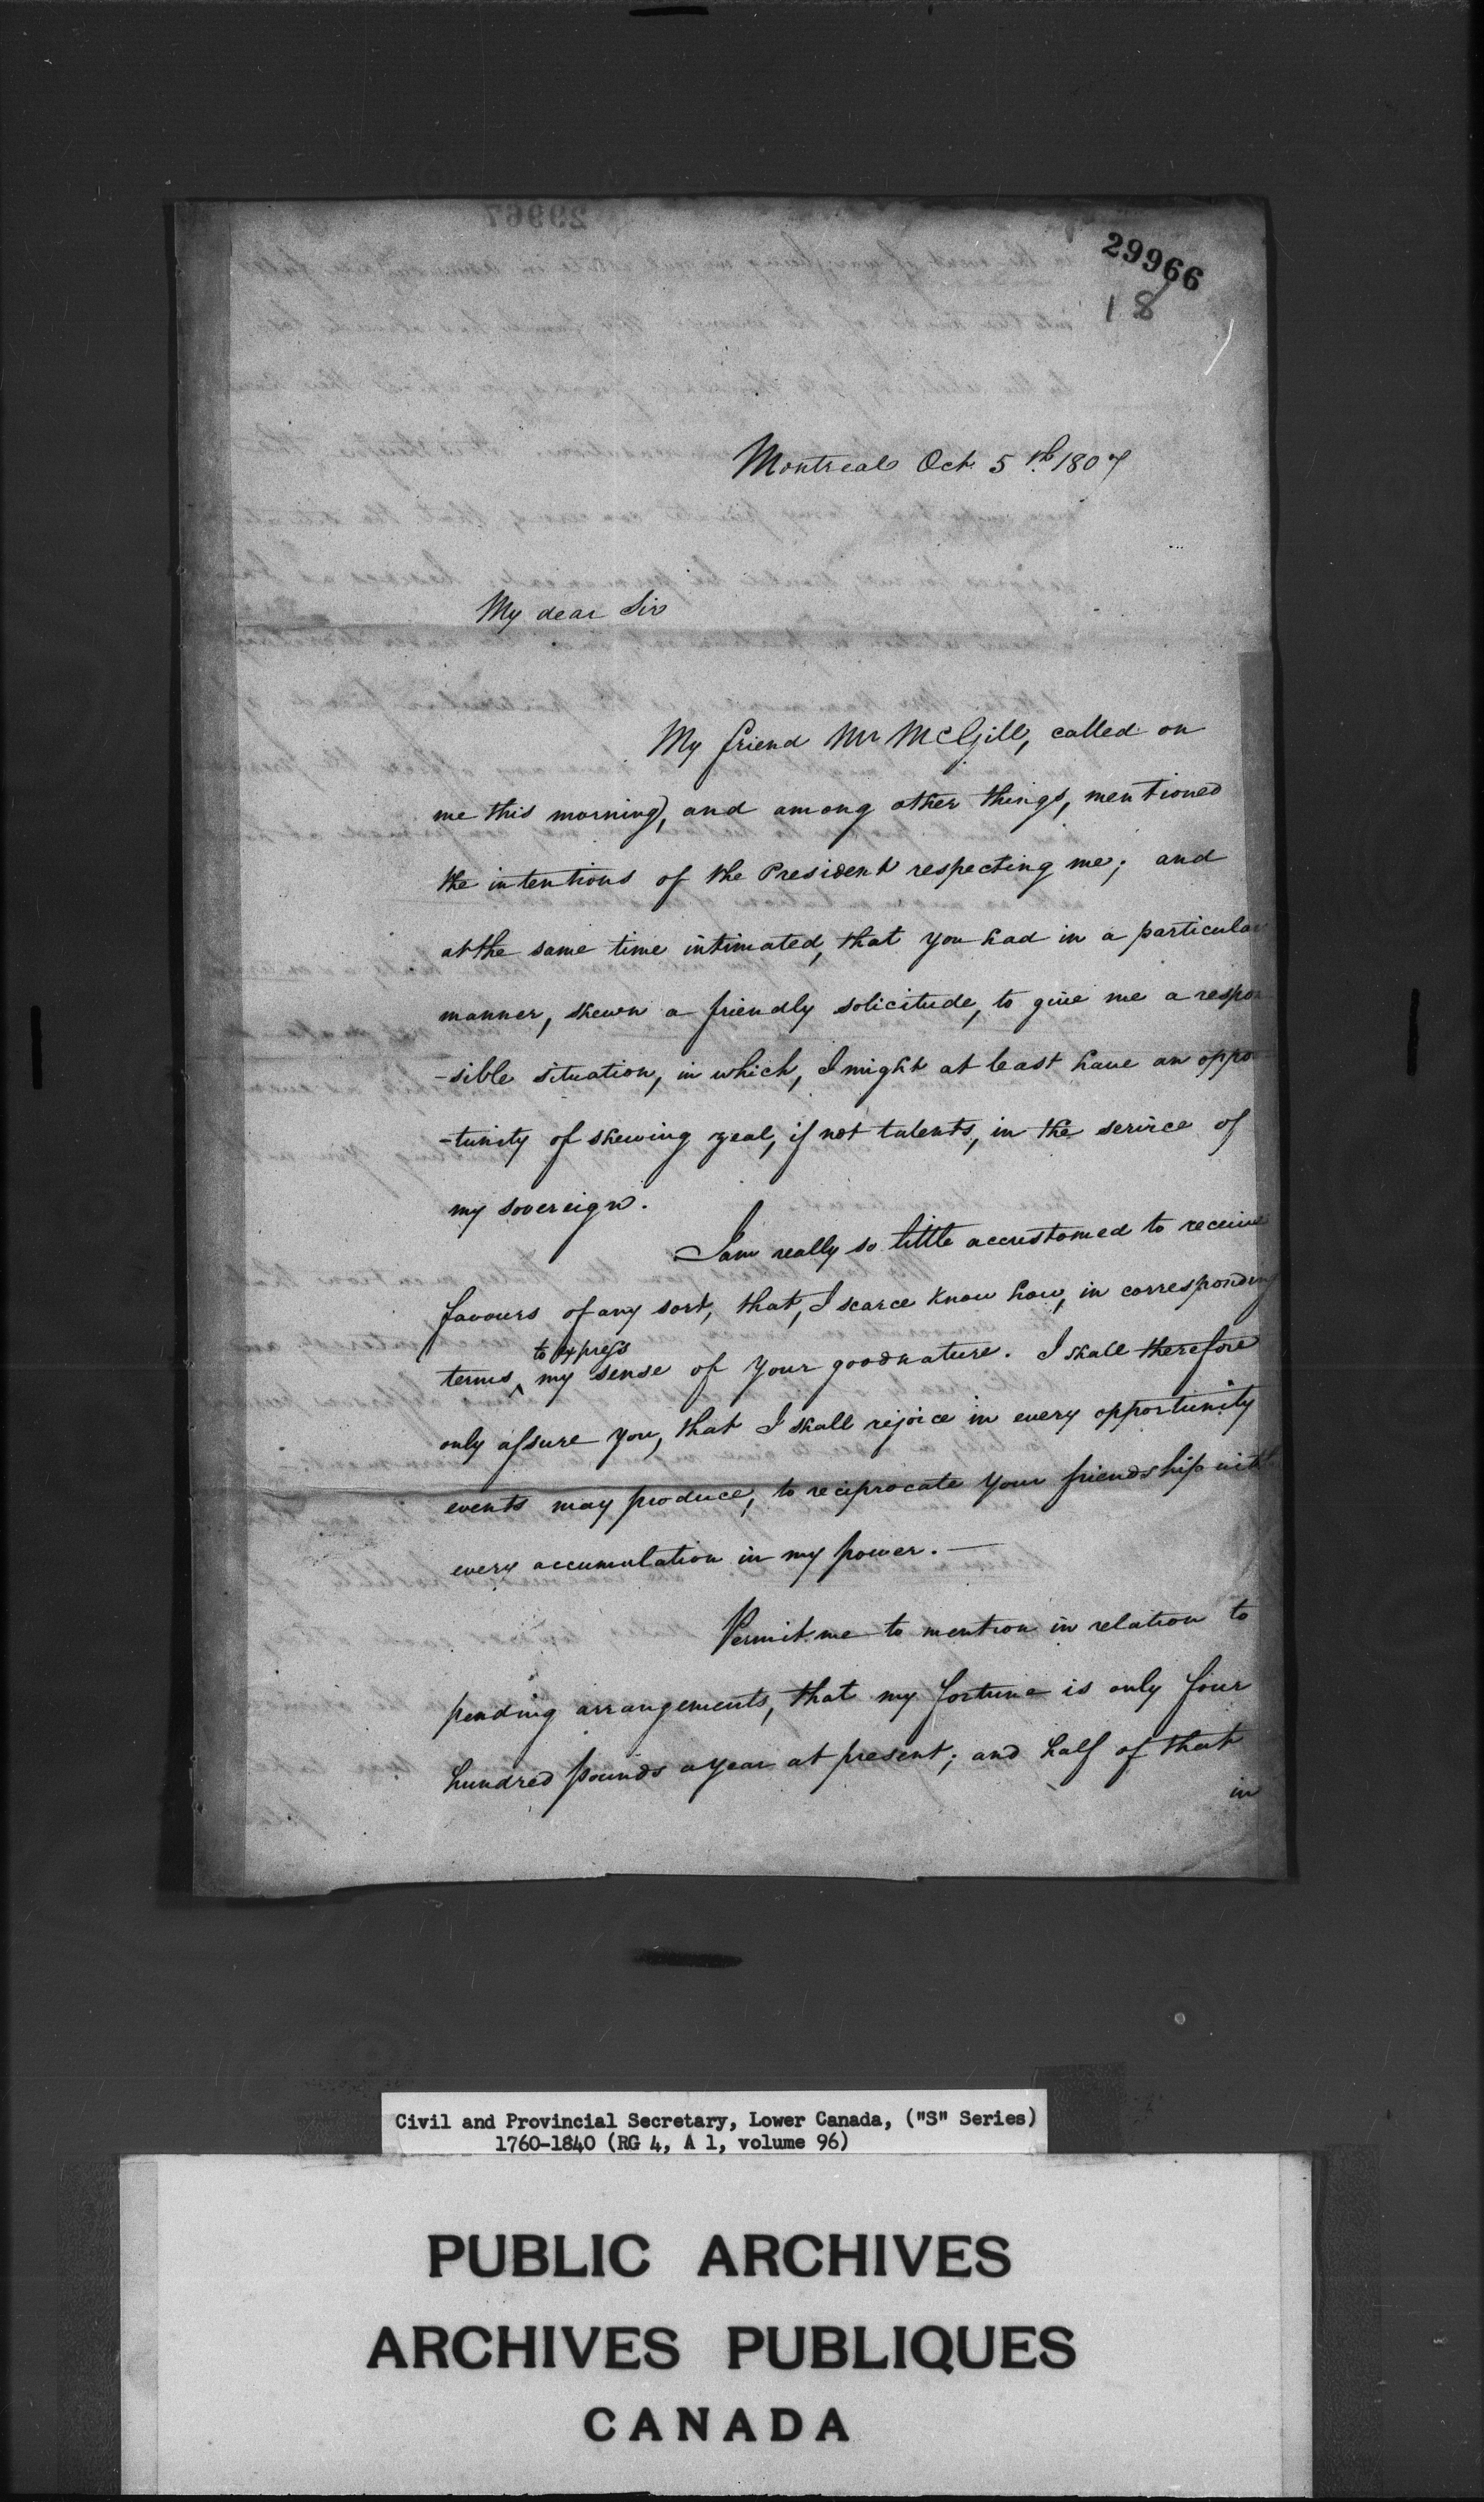 29966
18
Montreal Oct. 5th 1807
My dear Sir
My friend Mr McGill, called on
me this morning, and among other things, mentioned
the intentions of the President respecting me; and
at the same time intimated, that you had in a particular
manner, shewn a friendly solicitude, to give me a respon
-sible situation, in which, I might at least have an oppor
-tunity of shewing zeal, if not talents, in the service of
my sovereign.
I am really so little accustomed to receive
favours of any sort, that, I scarce know how, in corresponding
to express
terms ‸ my sense of your goodnature. I shall therefore
only assure you, that I shall rejoice in every opportunity
events may produce, to reciprocate your friendship with
every accumulation in my power. —
Permit me to mention in relation to
pending arrangements, that my fortune is only four
hundred pounds a year at present; and half of that
in
Civil and Provincial Secretary, Lower Canada, ("S" Series)
1760-1840 (RG 4, A 1, volume 96)
PUBLIC ARCHIVES
ARCHIVES PUBLIQUES
CANADA